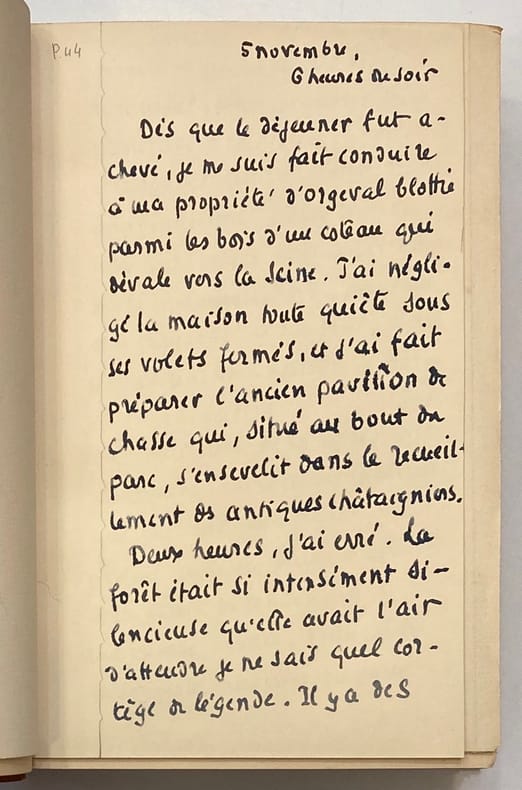 P. 44
5 novembre,
6 heures du soir
Dès que le déjeuner fut a-
chevé, je me suis fait conduire
à ma propriété d'Orgeval blottie
parmi les bois d'un coteau qui
dévale vers la Seine. J'ai négli-
gé la maison toute quiète sous
ses volets fermés, et j'ai fait
préparer l'ancien pavillon de
chasse qui, situé au bout du
parc, s'ensevelit dans le recueil-
lement des antiques châtaigniers.
Deux heures, j'ai erré. La
forêt était si intensément si-
lencieuse qu'elle avait l'air
d'attendre je ne sais quel cor-
tège de légende. Il y a des